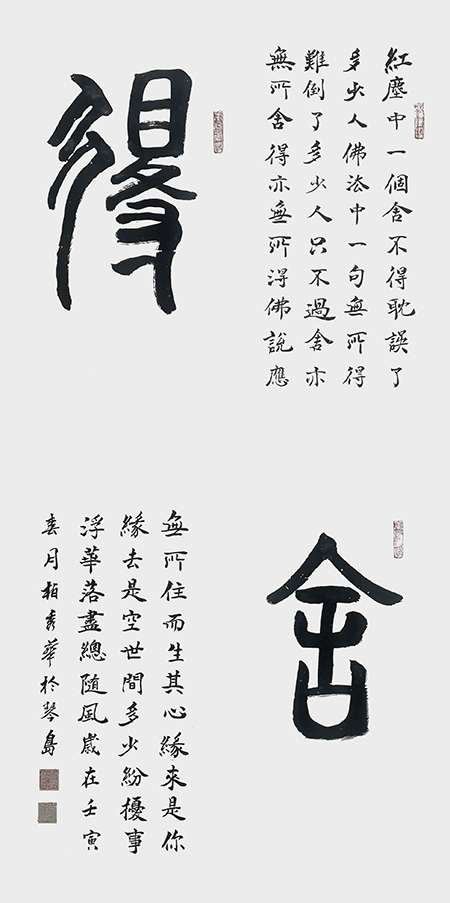 紅塵中一個舍不得耽誤了
多少人佛法中一句無所得
難倒了多少人只不過舍亦
無所舍得亦無所得佛說應
得
舍
無所住而生其心緣來是你
緣去是空世間多少紛擾事
浮華落盡總隨風歲在壬寅
春月柏秀華於琴島